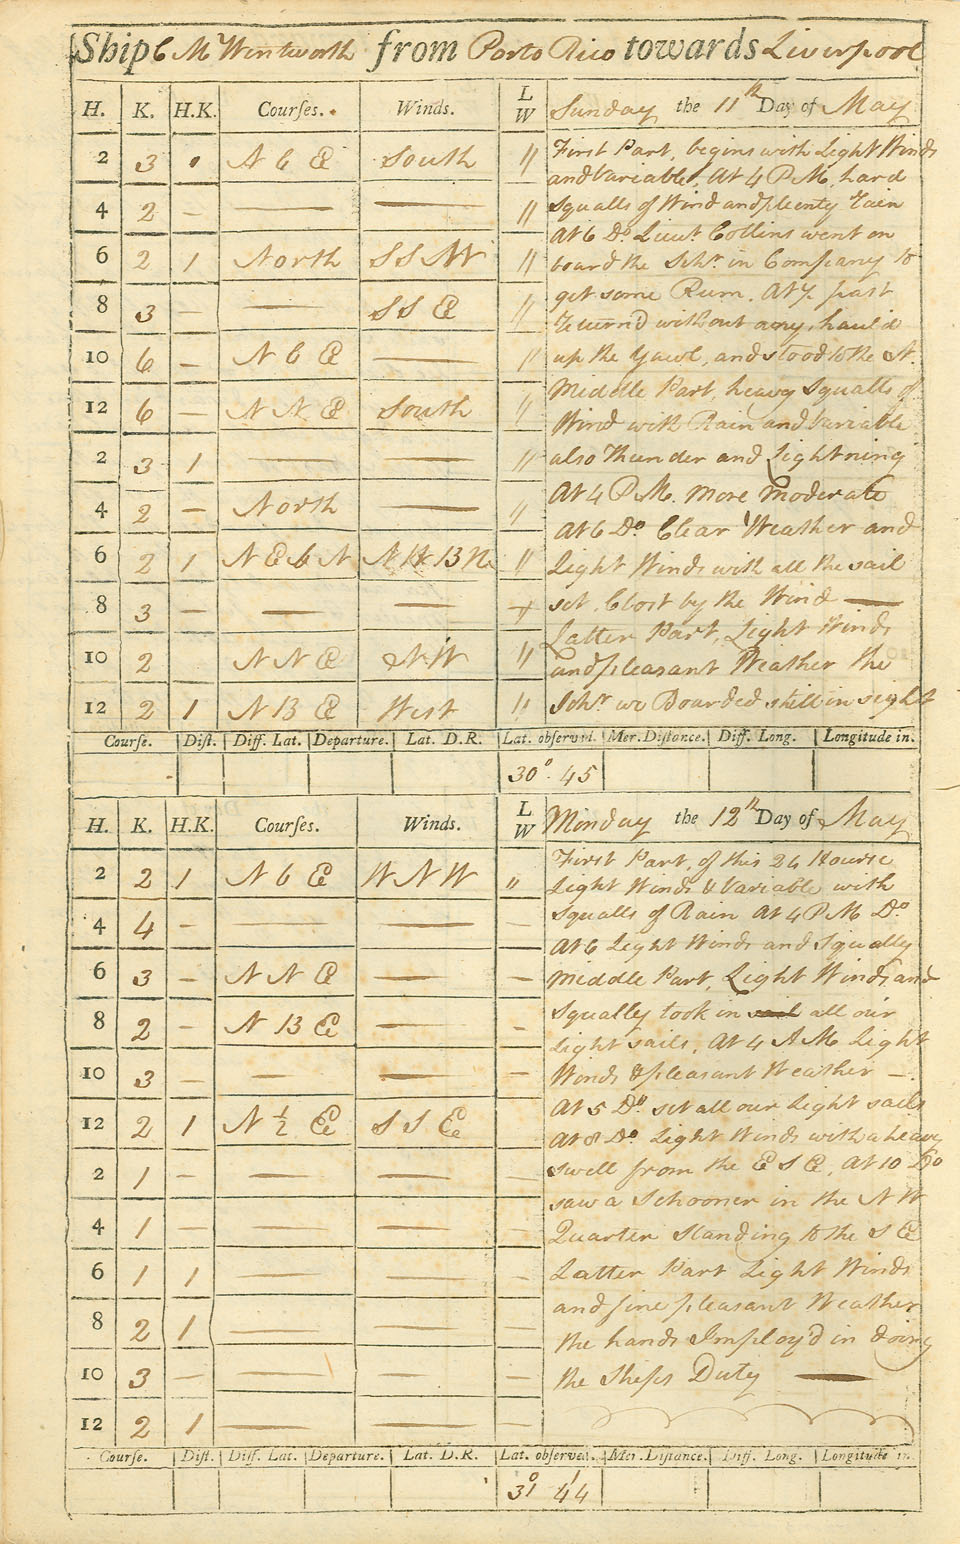 Ship C Mr Wentworth from Porto Rico towards Liverpool
H. K. H.K. Courses. Winds. L W Sunday the 11th Day of May
2 3 1 N b E South "
4 2 – — — "
6 2 1 North SSW "
8 3 – — SSE "
10 6 – N b E — "
12 6 – N N E South "
2 3 1 — — "
4 2 – North — "
6 2 1 N E b N N W B N "
8 3 – — —
10 2 N N E N W "
12 2 1 N B E West "
First Part, begins with Light Winds
and Variable, At 4 P M, hard
Squalls of Wind and plenty rain
At 6 Do. Lieut. Collins went on
board the Schr. in Company to
get some Rum. At 7 past
returnd without any, haul'd
up the Yawl, and stood to the N.
Middle Part, heavy Squalls of
Wind with Rain and Variable
also Thunder and Lightning
At 4 P M. more moderate
At 6 Do Clear Weather and
Light Winds with all the sail
set. Close by the Wind —
Latter Part, Light Winds
and pleasant Weather the
Schr we Boarded still in sight
Course. Dist. Diff. Lat. Departure. Lat. D.R. Lat. observed. Mer. Distance. Diff. Long. Longitude in.
30° 45
H. K. H.K. Courses. Winds. L W Monday the 12th Day of May
2 2 1 N b E W N W "
4 4 – — — –
6 3 – N N E — –
8 2 – N B E — –
10 3 – — — –
12 2 1 N ½ E S S E
2 1 – — — –
4 1 – — — –
6 1 1 — — –
8 2 1 — — –
10 3 – — — –
12 2 1 — — –
First Part, of this 24 Hours
Light Winds & Variable with
Squalls of Rain At 4 P M Do.
At 6 Light Winds and Squally
Middle Part, Light Winds and
Squally took in sail all our
light sails, At 4 A M Light
Winds & pleasant Weather —.
At 5 Do set all our Light sails
At 8 Do. Light Winds with a heavy
swell from the E S E, At 10 Do
saw a Schooner in the N W
Quarter standing to the S E
Latter Part Light Winds
and fine pleasant Weather
the hands Imploy'd in doing
the Ships Duty —
Course. Dist. Diff. Lat. Departure. Lat. D.R. Lat. observed. Mer. Distance. Diff. Long. Longitude in.
31° 44'